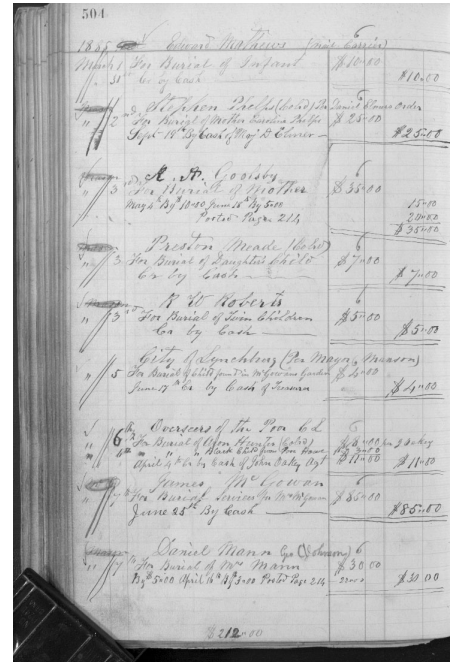 504
Edward Mathews (Mail Carrier) 6
March 1 For Burial of Infant $10=00
" 31st Cr by Cash $10=00
Stephen Phelps (Col'd) Daniel Elmore Order
" 2nd For Burial of Mother Carolina Phelps $25=00
Sept 18th By Cash of Maj D Elmer $25=00
A. A. Goolsby 6
" 3 For Burial of Mother $35=00
May 4th By $10=00 June 18th By 5=00 15=00
Posted Page 214 20=00
$35=00
Preston Meade (Col'd) 6
" 3 For Burial of Daughters Child $7=00
Cr by Cash $7=00
R W Roberts 6
" 3rd For Burial of Twin Children $5=00
Cr by Cash $5=00
City of Lynchburg (Per Mayor Manson)
" 5 For Burial of Child found in McGowans Garden $4=00
June 17th Cr by Cash of Treasurer $4=00
Overseers of the Poor C.L. 6
" 6 For Burial of Hunter (Col'd)
" " Black Child from Poor House
April 4th Cr by Cash of John Oakey Agt $11=00 $11=00
James McGowan 6
" 7 For Burial Services for Mrs McGowan $85=00
June 25th By Cash $85=00
Daniel Mann (Johnson) 6
" 7 For Burial of Mrs Mann $30=00
By $5=00 April 16th By 3=00 Posted Page 214 22=00 $30=00
$212=00